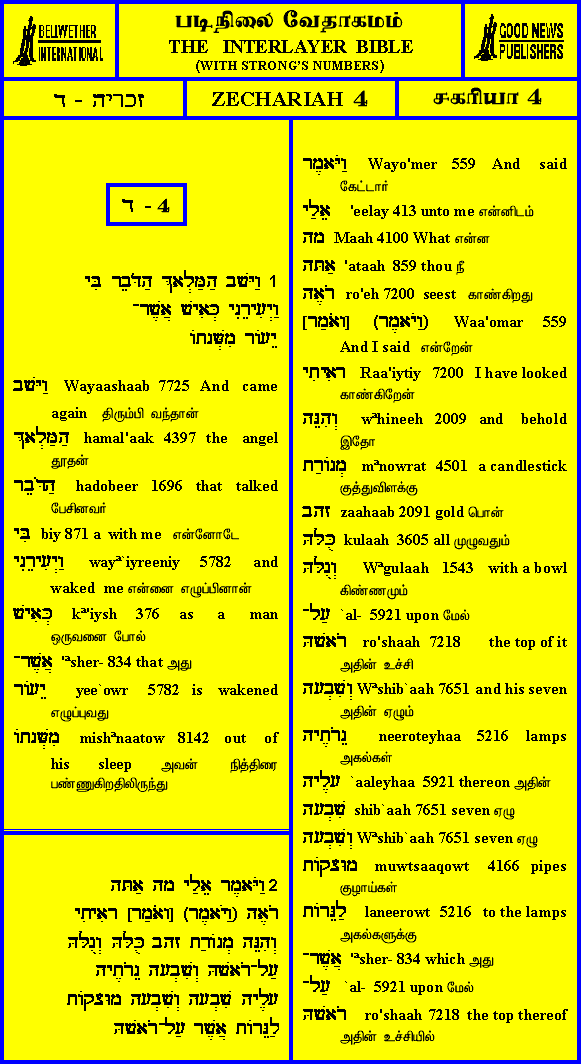 BELLWETHER
INTERNATIONAL
படிநிலை வேதாகமம்
THE INTERLAYER BIBLE
(WITH STRONG'S NUMBERS)
GOOD NEWS
PUBLISHERS
זכריה - ד
ZECHARIAH 4
சகரியா 4
ד - 4
1 וַיָּשׁב הַמַּלְאךְ הַדֹּבֵר בִּי
וַיְעִירֵנִי כְּאִישׁ אֲשֶׁר־
יֵעוֹר מִשְּׁנתוֹ
וַיָּשׁב Wayaashaab 7725 And came
again திரும்பி வந்தான்
הַמַּלְאךְ hamal'aak 4397 the angel
தூதன்
הַדֹּבֵר hadobeer 1696 that talked
பேசினவர்
בִּי biy 871 a with me என்னோடே
וַיְעִירֵנִי wayª`iyreeniy 5782 and
waked me என்னை எழுப்பினான்
כְּאִישׁ kª'iysh 376 as a man
ஒருவனை போல்
אֲשֶׁר־ 'ªsher- 834 that அது
יֵעוֹר yee`owr 5782 is wakened
எழுப்புவது
מִשְּׁנתוֹ mishªnaatow 8142 out of
his sleep அவன் நித்திரை
பண்ணுகிறதிலிருந்து
2 וַיֹּאמֶר אֵלַי מה אַתּה
רֹאֶה (וַיֹּאמֶר) [וֹאמַר] ראִיתִי
וְהִנֵּה מְנוֹרַת זהב כֻּלּהּ וְגֻלּהּ
עַל־רֹאשׁהּ וְשִׁבְעה נֵרֹתֶיה
עלֶיה שִׁבְעה וְשִׁבְעה מוּצקוֹת
לַנֵּרוֹת אֲשֶׁר עַל־רֹאשׁהּ
וַיֹּאמֶר Wayo'mer 559 And said
கேட்டார்
אֵלַי 'eelay 413 unto me என்னிடம்
מה Maah 4100 What என்ன
אַתּה 'ataah 859 thou நீ
רֹאֶה ro'eh 7200 seest காண்கிறது
(וַיֹּאמֶר) [וֹאמַר] Waa'omar 559
And I said என்றேன்
ראִיתִי Raa'iytiy 7200 I have looked
காண்கிறேன்
וְהִנֵּה wªhineeh 2009 and behold
இதோ
מְנוֹרַת mªnowrat 4501 a candlestick
குத்துவிளக்கு
זהב zaahaab 2091 gold பொன்
כֻּלּהּ kulaah 3605 all முழுவதும்
וְגֻלּהּ Wªgulaah 1543 with a bowl
கிண்ணமும்
עַל־ `al- 5921 upon மேல்
רֹאשׁהּ ro'shaah 7218 the top of it
அதின் உச்சி
וְשִׁבְעה Wªshib`aah 7651 and his seven
அதின் ஏழும்
נֵרֹתֶיה neeroteyhaa 5216 lamps
அகல்கள்
עלֶיה `aaleyhaa 5921 thereon அதின்
שִׁבְעה shib`aah 7651 seven ஏழு
וְשִׁבְעה Wªshib`aah 7651 seven ஏழு
מוּצקוֹת muwtsaaqowt 4166 pipes
குழாய்கள்
לַנֵּרוֹת laneerowt 5216 to the lamps
அகல்களுக்கு
אֲשֶׁר־ 'ªsher- 834 which அது
עַל־ `al- 5921 upon மேல்
רֹאשׁהּ ro'shaah 7218 the top thereof
அதின் உச்சியில்